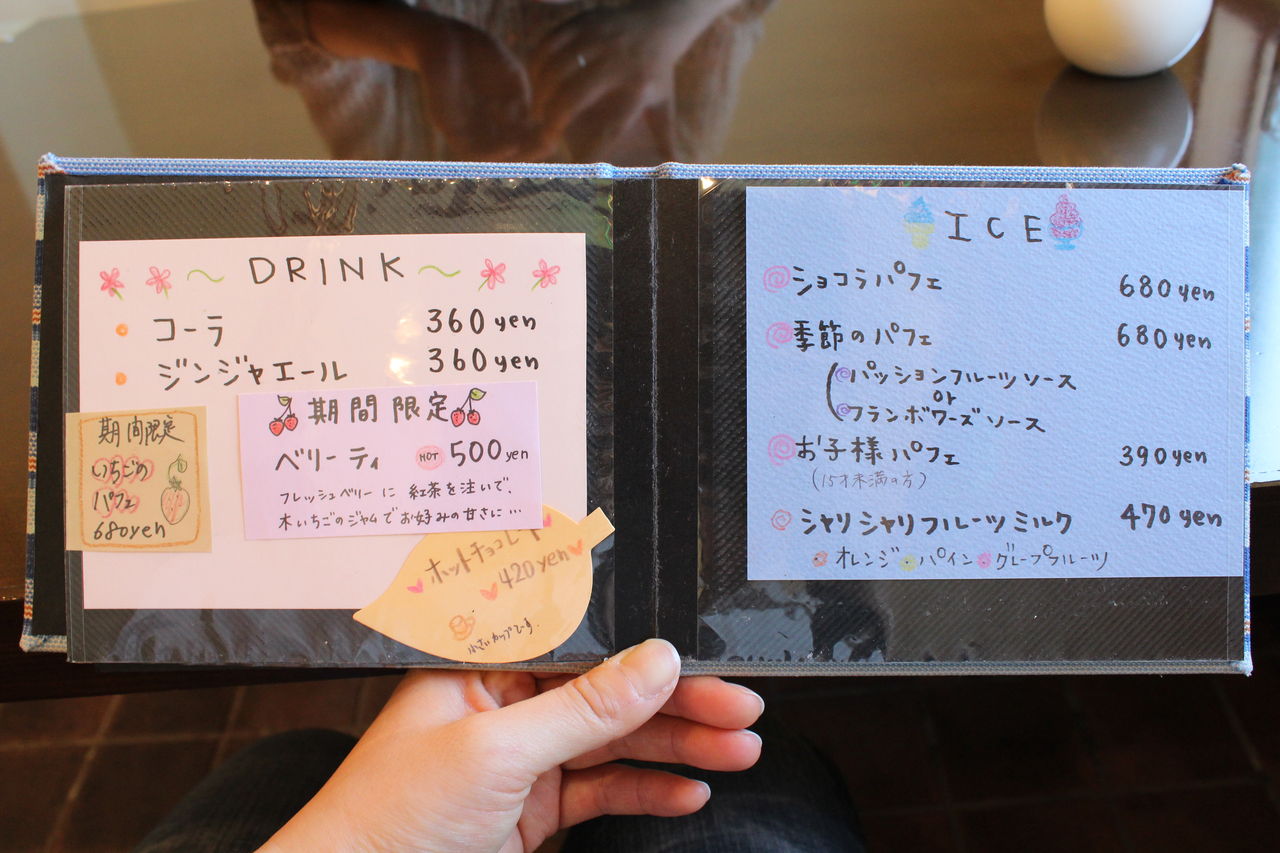 DRINK
コーラ 360yen
ジンジャエール 360yen
期間限定
いちごの
パフェ
680yen
期間限定
ベリーティ HOT 500yen
フレッシュベリーに紅茶を注いで、
木いちごのジャムでお好みの甘さに…
ホットチョコレート
420yen
小さいカップです.
ICE
ショコラパフェ 680yen
季節のパフェ 680yen
(パッションフルーツソース
or
フランボワーズソース
お子様パフェ 390yen
(15才未満の方)
シャリシャリフルーツミルク 470yen
オレンジ パイン グレープフルーツ